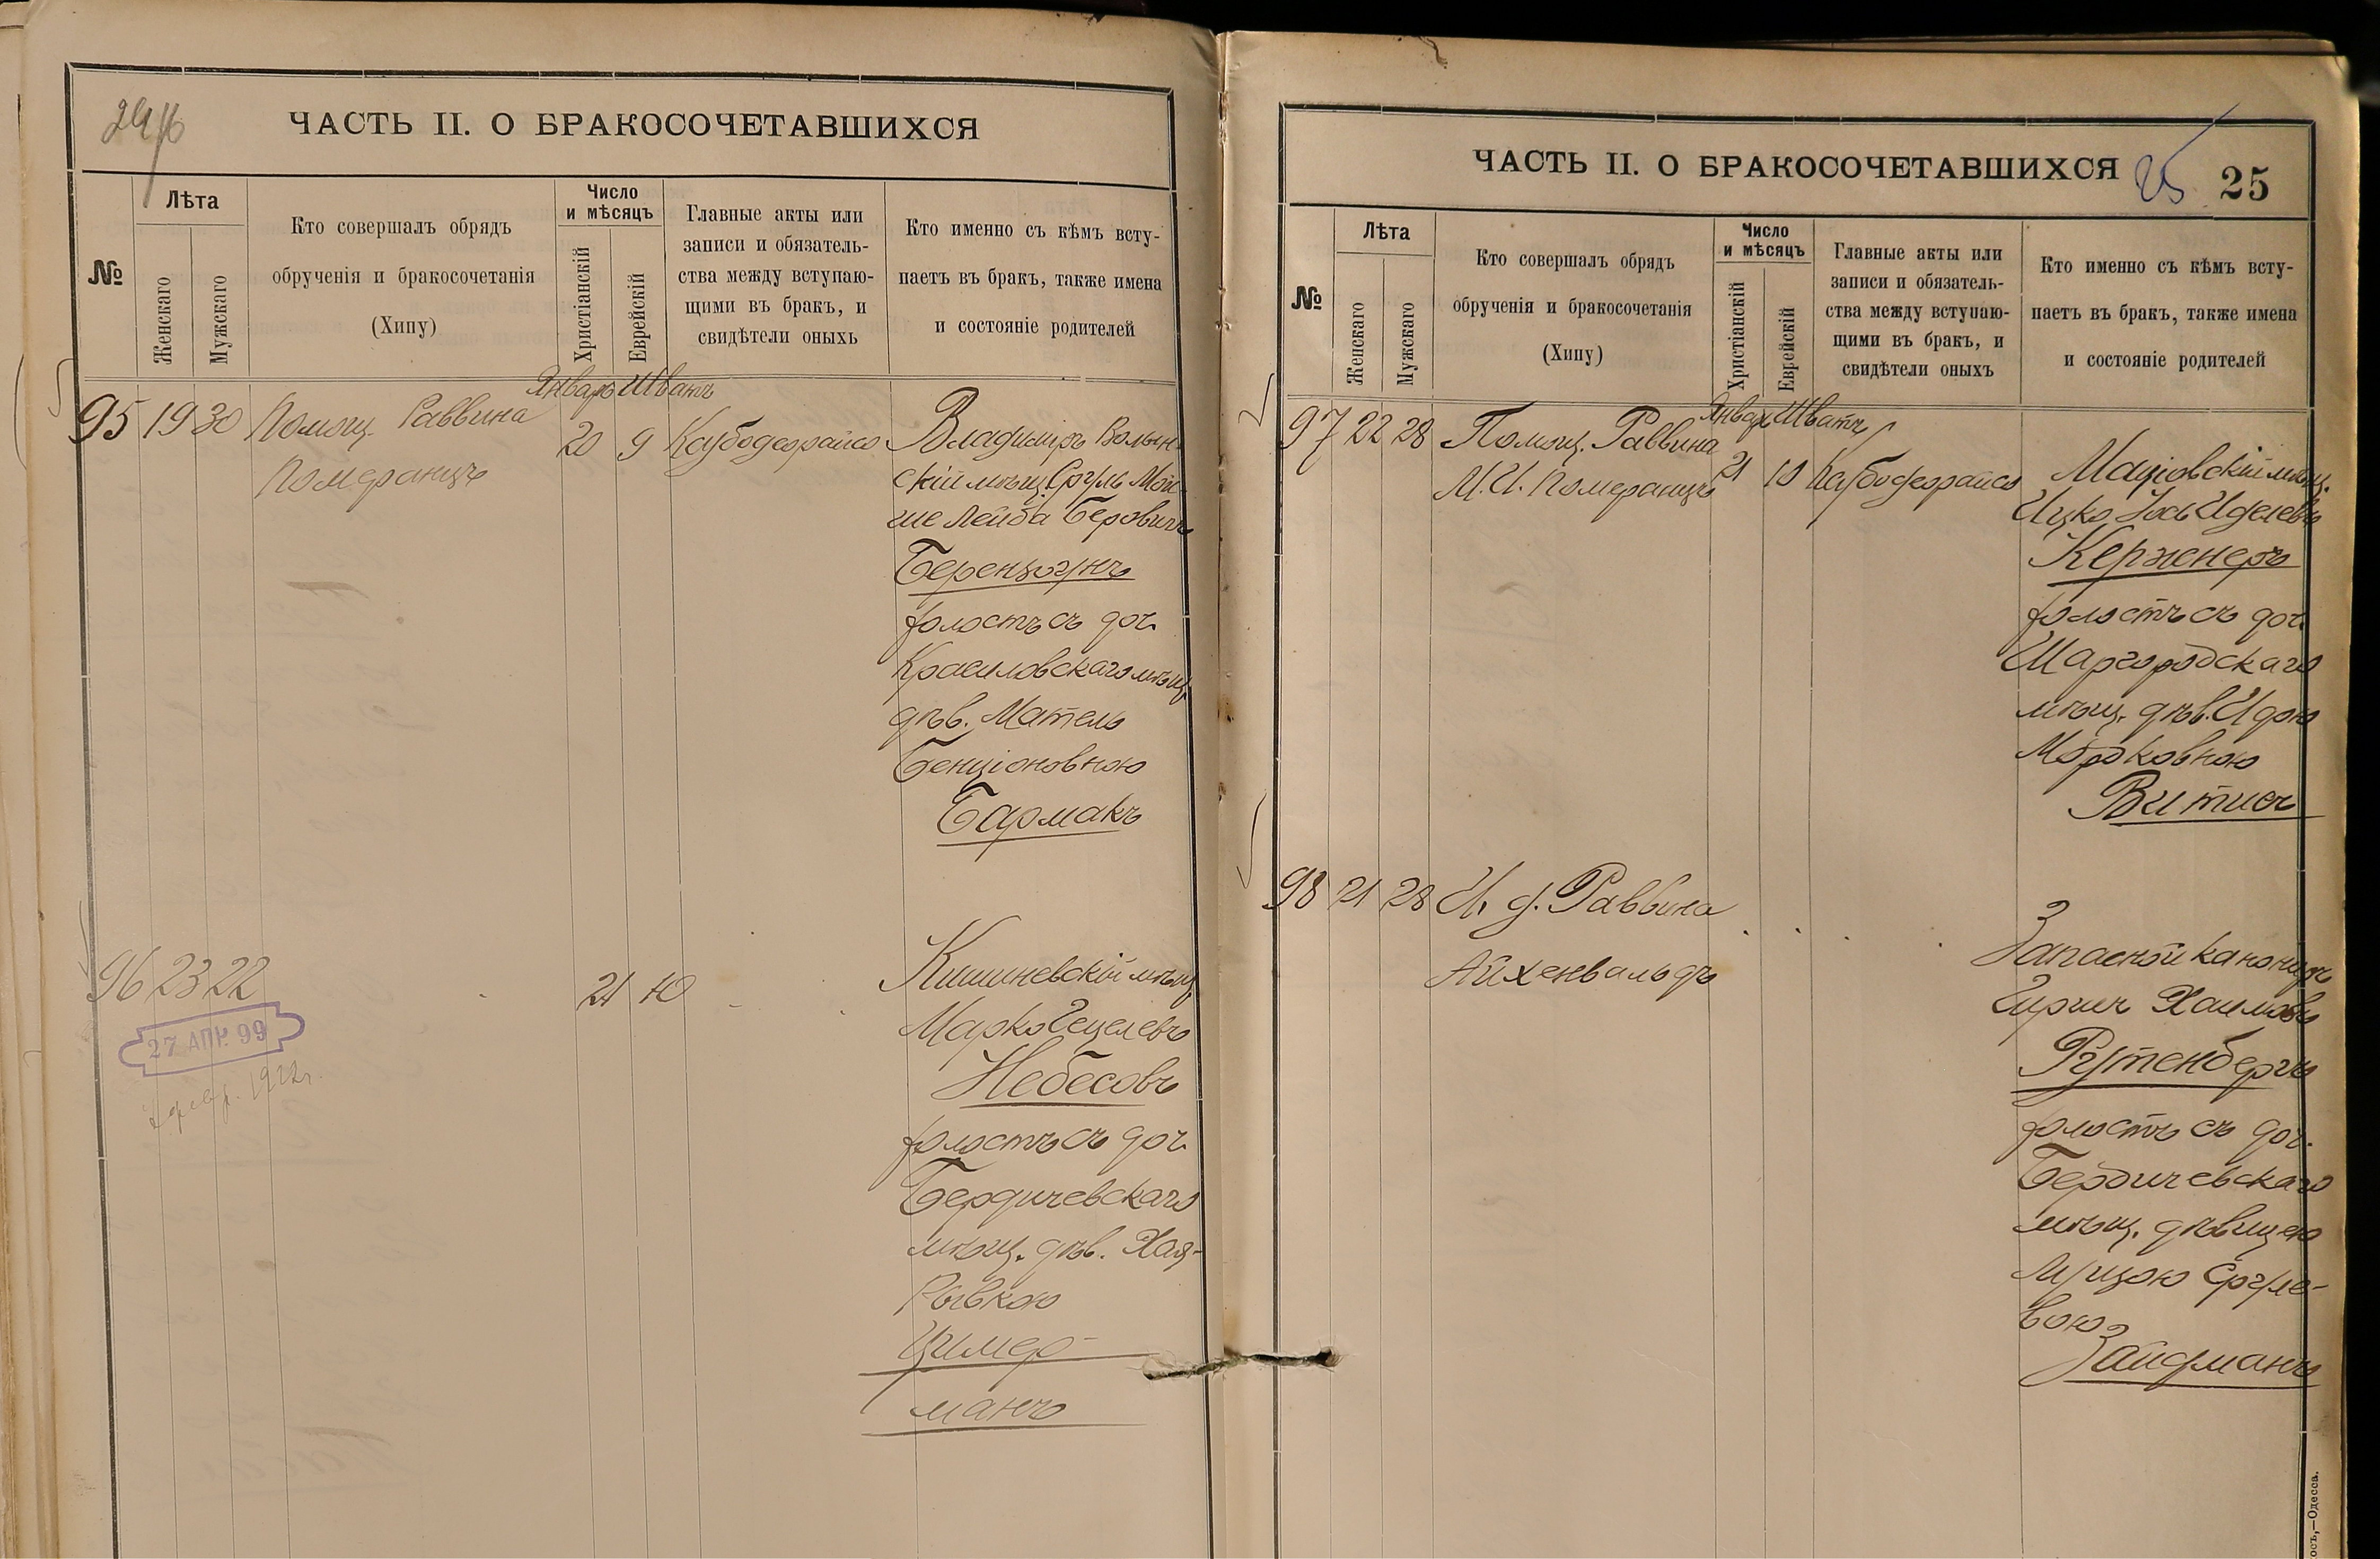 24
ЧАСТЬ II. О БРАКОСОЧЕТАВШИХСЯ
№
Лѣта
Женскаго
Мужскаго
Кто совершалъ обрядъ
обрученія и бракосочетанія
(Хипу)
Число
и мѣсяцъ
Христіанскій
Еврейскій
Главные акты или
записи и обязатель-
ства между вступаю-
щими въ бракъ, и
свидѣтели оныхъ
Кто именно съ кѣмъ всту-
паетъ въ бракъ, также имена
и состояніе родителей
Январь Шватъ
95 19 30 Помощ. Раввина
Померанцъ
20 9
Владиміръ Волын-
скій мѣщ. Сруль Мой-
ше Лейба Беровичъ
голостъ съ доч.
Красиловскаго мѣщ.
дѣв. Матель
Бенціоновною
Бармакъ
96 23 22
21 10
27 АПР. 99
1922г.
Кишиневскій мѣщ.
Марко Гецелевъ
Небесовъ
холостъ съ доч.
Бердичевскаго
мѣщ. дѣв. Хая-
Рывкою
Цимер-
манъ
ЧАСТЬ II. О БРАКОСОЧЕТАВШИХСЯ
25
25
№
Лѣта
Женскаго
Мужскаго
Кто совершалъ обрядъ
обрученія и бракосочетанія
(Хипу)
Число
и мѣсяцъ
Христіанскій
Еврейскій
Главные акты или
записи и обязатель-
ства между вступаю-
щими въ бракъ, и
свидѣтели оныхъ
Кто именно съ кѣмъ всту-
паетъ въ бракъ, также имена
и состояніе родителей
Январь Шватъ
97 22 28 Помощ. Раввина
М. И. Померанцъ
21 10
Маціовскій мѣщ.
Ицко Іось Иделевъ
Керженеръ
холостъ съ доч.
Шаргородскаго
мѣщ. дѣв. Идою
Мордковною
Витисъ
98 21 28 И. д. Раввина
Айхенвальдъ
Запасной канониръ
Гиршъ Хаимовъ
Рутенбергъ
холостъ съ доч.
Бердичевскаго
мѣщ. дѣвицею
Срулё-
вою
Зайфманъ
Одесса.